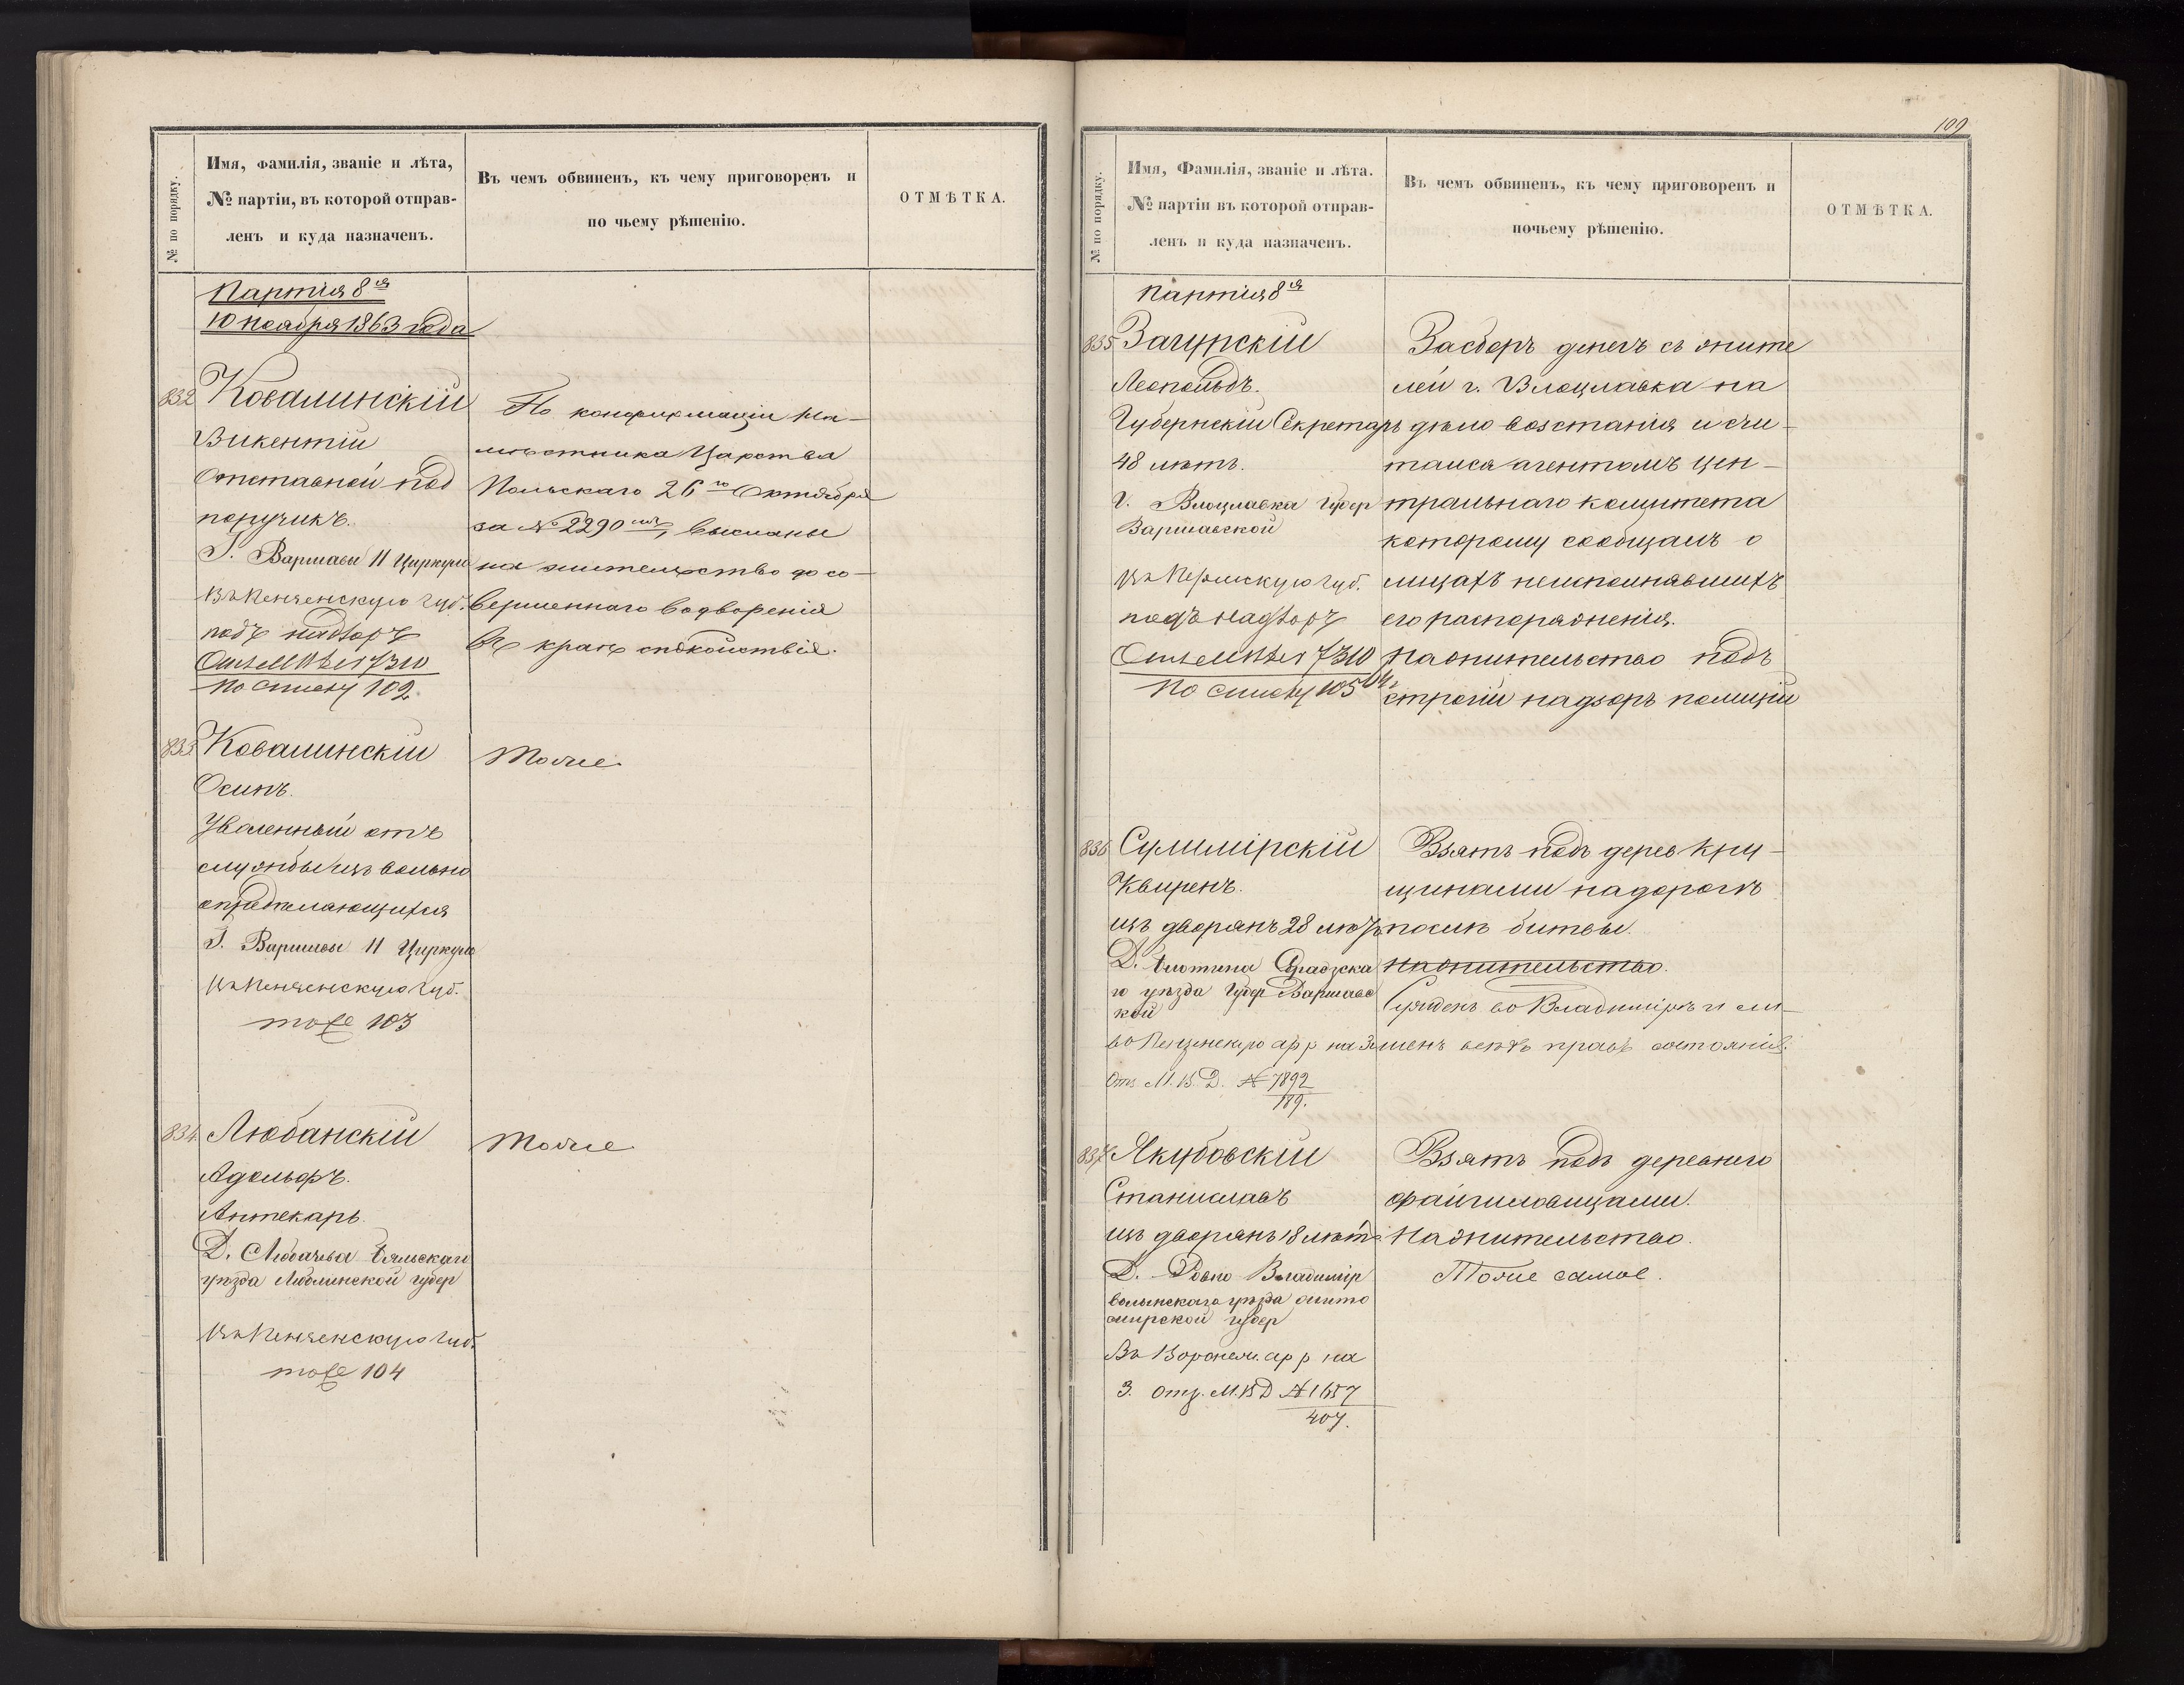 № по порядку.
Имя, фамилія, званіе и лѣта,
№ партіи, въ которой отправ-
ленъ и куда назначенъ.
Въ чемъ обвиненъ, къ чему приговоренъ и
по чьему рѣшенію.
ОТМѢТКА.
Партія 8ая
10 ноября 1863 года
832
Ковалинскій
Викентій
Отставной под
поручикъ.
Г. Варшавы 11 Циркула
Въ Пензенскую губ.
подъ надзоръ
По списку 102.
По конфирмаціи На-
мѣстника Царства
Польскаго 26го Октября
за № 2290мъ, высланы
на жительство до со-
вершеннаго водворенія
въ краѣ спокойствія.
833
Ковалинскій
Осипъ.
Уволенный отъ
службы изъ вольно
опредѣляющихся
Г. Варшавы 11 Циркула
Въ Пензенскую губ.
тоже 103
Тоже.
834
Любанскій
Адольфъ.
Аптекарь.
уѣзда Люблинской губер
Въ Пензенскую губ.
тоже 104
Тоже
109
№ по порядку.
Имя, Фамилія, званіе и лѣта.
№ партіи въ которой отправ-
ленъ и куда назначенъ.
Въ чемъ обвиненъ, къ чему приговоренъ и
почьему рѣшенію.
ОТМѢТКА.
Партія 8ая
835
Загурскій
Леопольдъ.
Губернскій Секретарь
48 лѣтъ.
г. Влоцлавка губер
Варшавской
Въ Пермскую губ.
подъ надзоръ
По списку 105
За сборъ денегъ съ жите
лей г. Влоцлавка на
дѣло возстанія и счи-
тался агентомъ цен-
тральнаго комитета
которому сообщалъ о
лицахъ неисполнявшихъ
его распоряженія.
На жительство подъ
строгій надзоръ полиціи
836
Сулимірскій
Квиренъ.
изъ дворянъ 28 лѣтъ
го уѣзда губер Варшавс
кой
Отз М. В. Д. № 7892
189.
Взятъ подъ дерев Кру-
щинами на дорогѣ
послѣ битвы.
на жительство.
Сужденъ во Владимірѣ и ли-
шенъ всѣхъ правъ состоянія.
837
Якубовскій
Станиславъ
изъ дворянъ 18 лѣтъ
Д. Ровно Владимір
волынскаго уѣзда жито
мирской губер
Въ Воронеж. ар р на
З. Отз. М. В Д № 1657
407.
Взятъ подъ деревнею
файчиловицами.
На жительство.
Тоже самое.